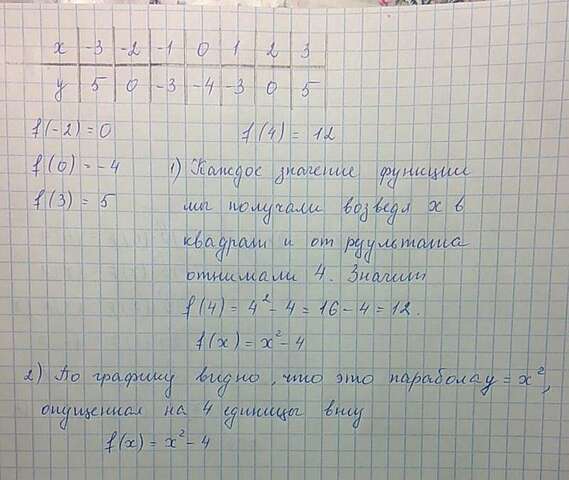 x -3 -2 -1 0 1 2 3
y 5 0 -3 -4 -3 0 5
f(-2) = 0 f(4) = 12
f(0) = -4 1) Каждое значение функции
f(3) = 5 мы получали возведя x в
квадрат и от результата
отнимали 4. Значит
f(4) = 4² - 4 = 16 - 4 = 12.
f(x) = x² - 4
2) По графику видно, что это парабола y = x²,
опущенная на 4 единицы вниз
f(x) = x² - 4